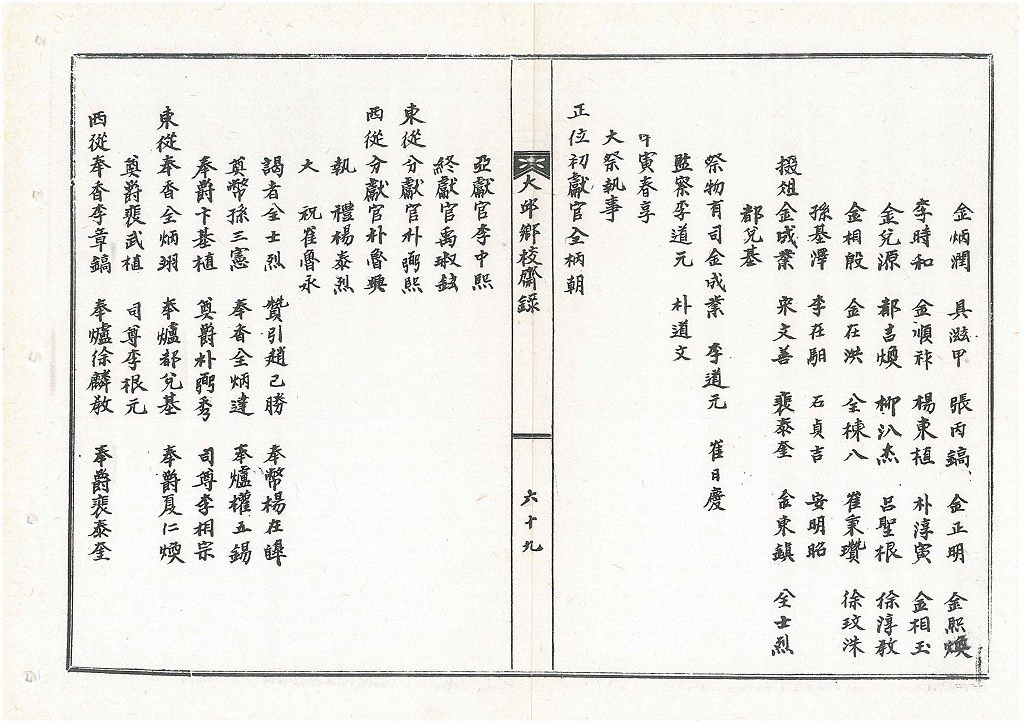 金炳潤 具滋甲 張丙鎬 金正明 金熙煥
李時和 金順祚 楊東植 朴淳寅 金相玉
金兌源 都吉煥 柳汃杰 呂聖根 徐淳敎
金相殷 金在洪 全棟八 崔秉瓚 徐玟洙
孫基澤 李在馹 石貞吉 安明昭
掇俎金成業 宋文善 裵泰奎 金東鎭 全士烈
都兌基
祭物有司金成業 李道元 崔日慶
監察李道元 朴道文
寅春享
大祭執事
正位初獻官全柄朝
大邱鄕校齋錄
六十九
亞獻官李中熙
終獻官禹淑鉉
東從分獻官朴弼熙
西從分獻官朴魯奭
執禮楊泰烈
大祝崔魯永
謁者全士烈 贊引趙己勝 奉幣楊在
奠幣孫三憲 奉香全炳達 奉爐權五錫
奉爵卞基植 奠爵朴弼秀 司尊李相宗
東從奉香全炳翊 奉爐都兌基 奉爵夏仁煥
奠爵裵武植 司尊李根元
西從奉香李章鎬 奉爐徐麟敎 奉爵裵泰奎